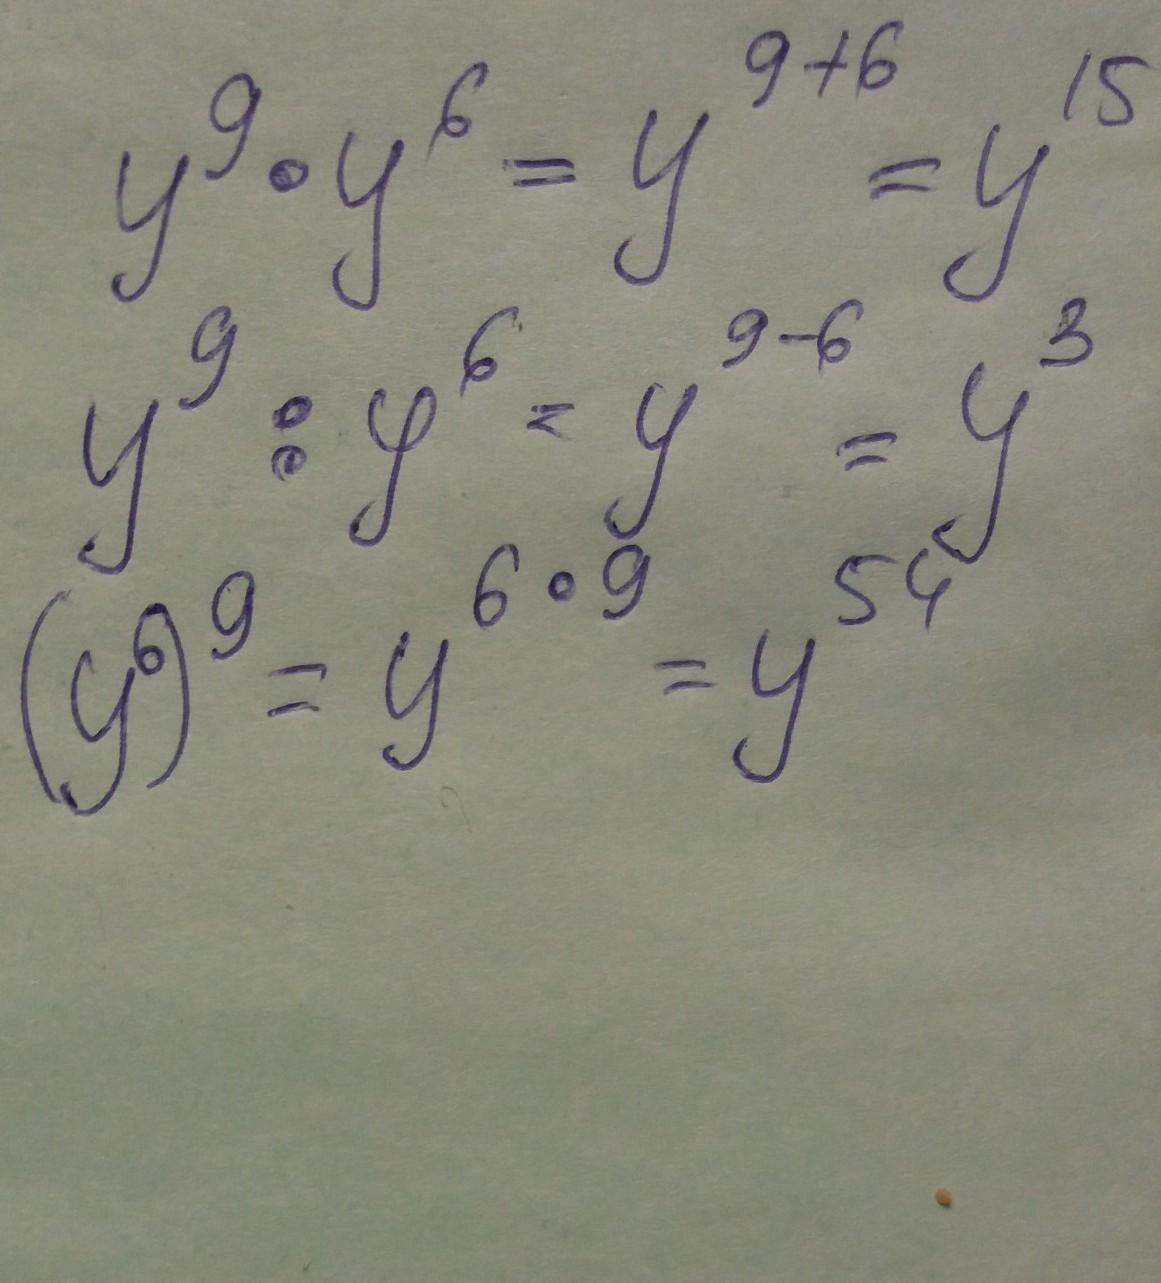 y⁹ • y⁶ = y⁹⁺⁶ = y¹⁵
y⁹ : y⁶ = y⁹⁻⁶ = y³
(y⁶)⁹ = y⁶˙⁹ = y⁵⁴